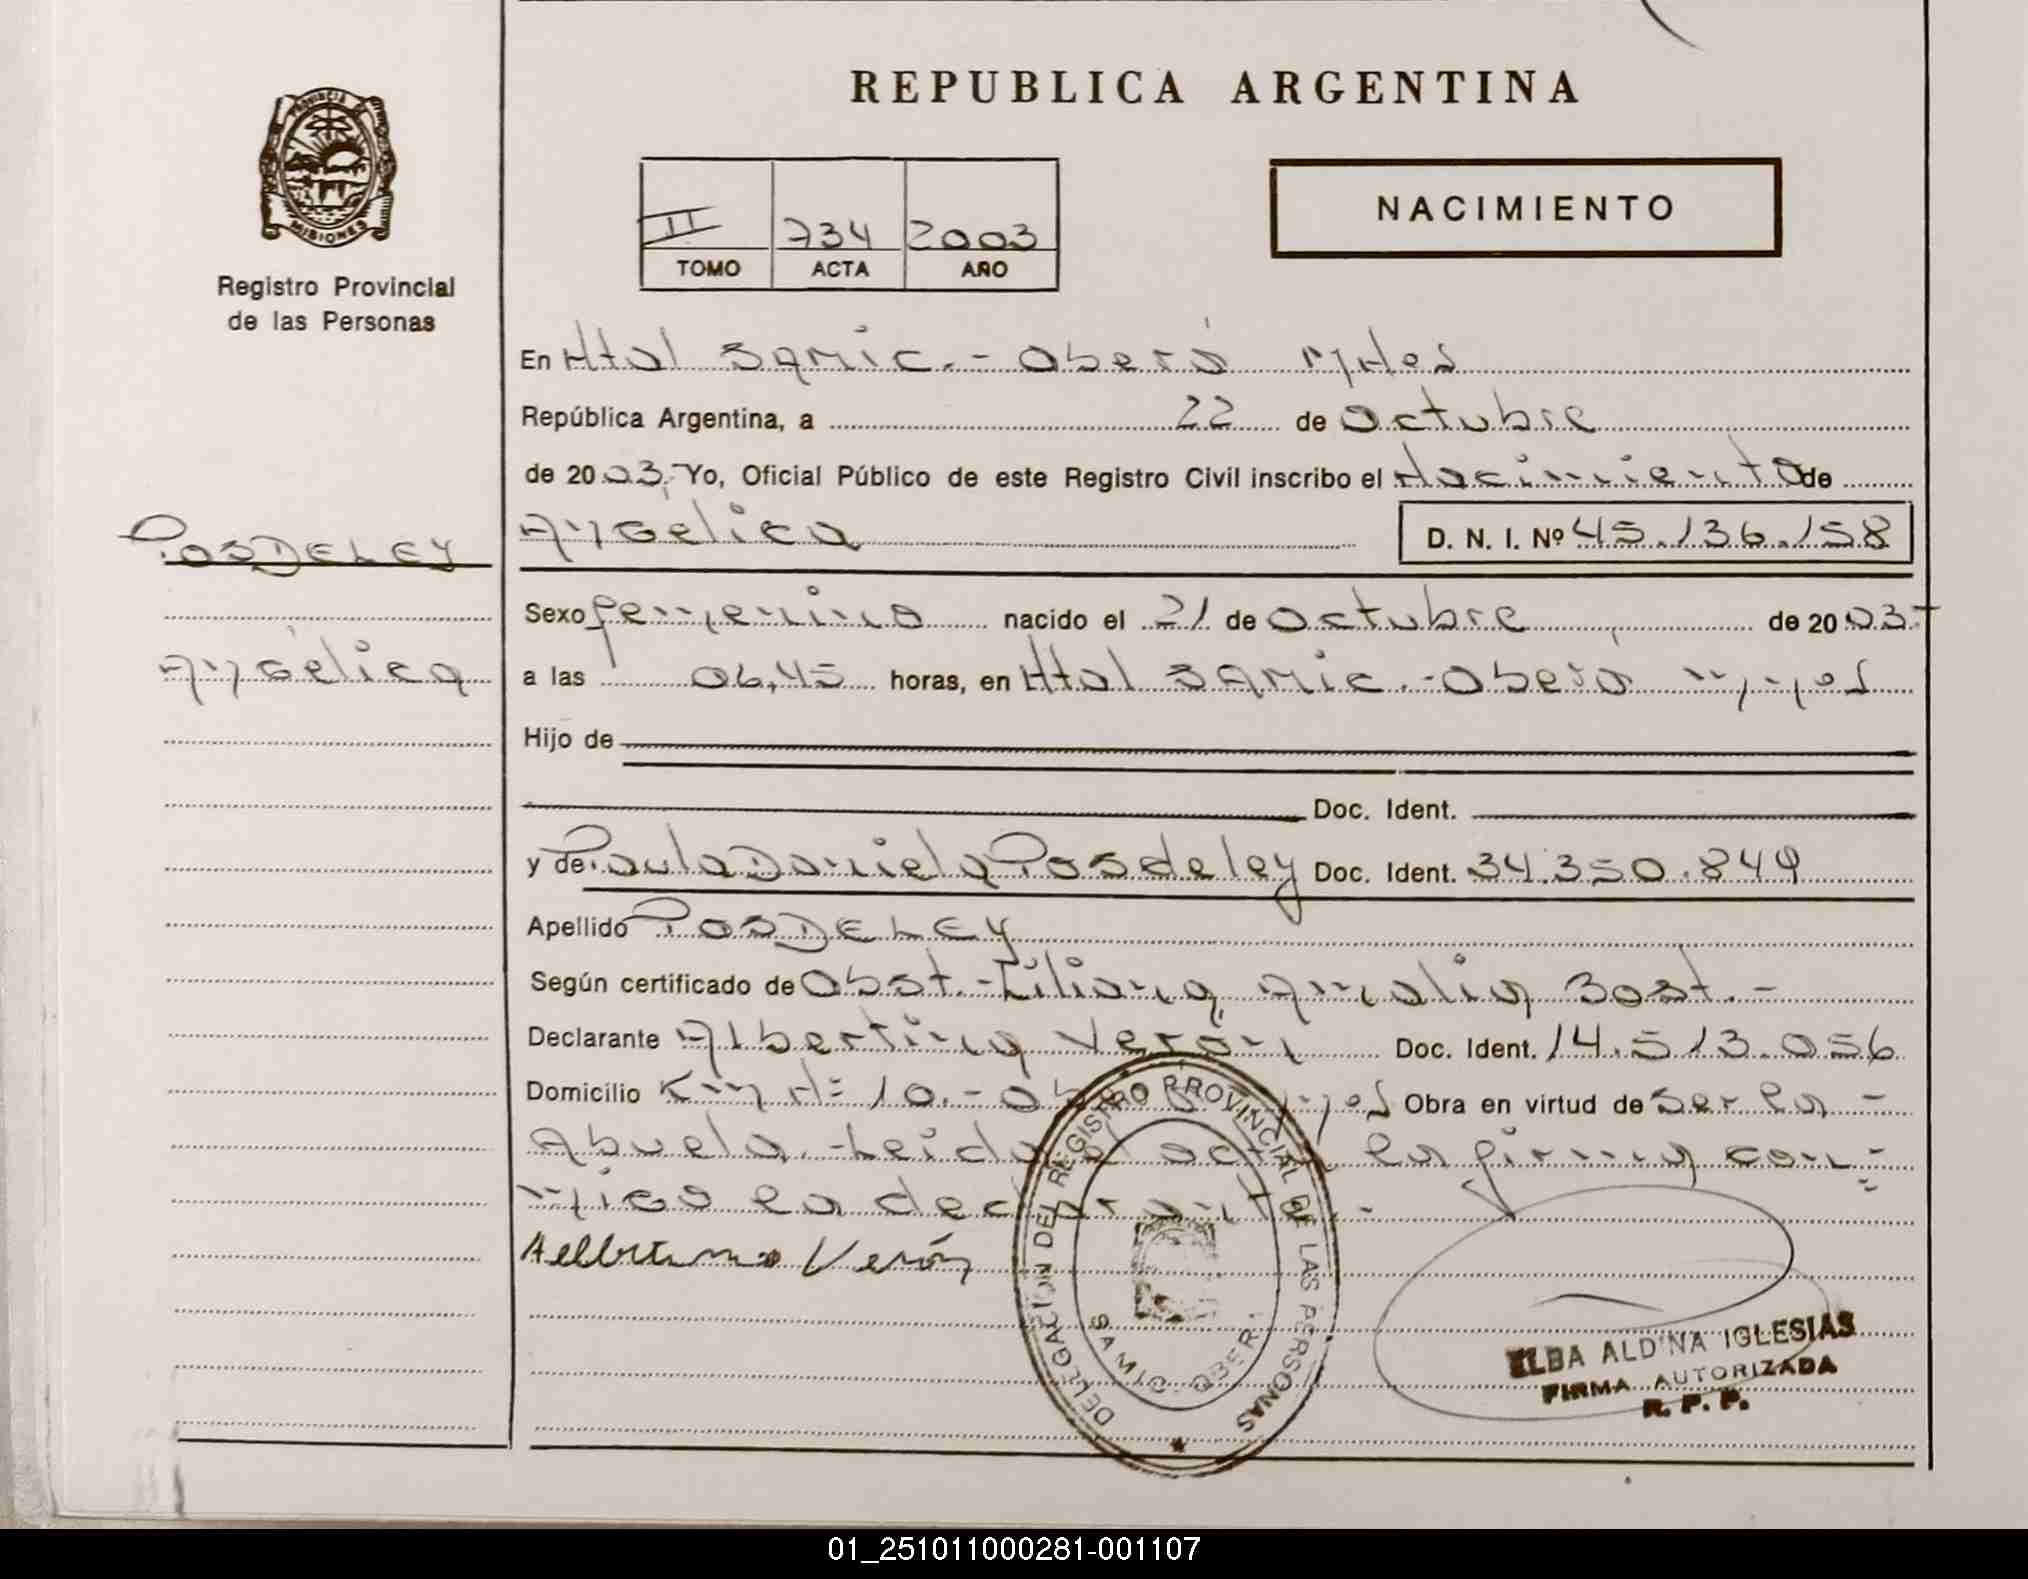 REPUBLICA ARGENTINA
PROVINCIA DE
MISIONES
Registro Provincial
de las Personas
II 734 2003
TOMO ACTA AÑO
NACIMIENTO
En Htal Samic.- Oberá Mnes
República Argentina, a 22 de Octubre
de 2003.- Yo, Oficial Público de este Registro Civil inscribo el Nacimiento de
Angélica D. N. I. Nº 45.136.158
POSDELEY
Angélica
Sexo femenino nacido el 21 de Octubre de 2003.-
a las 06,45 horas, en Htal Samic.- Oberá
Hijo de
Doc. Ident.
y de Paula Daniela Posdeley Doc. Ident. 34.350.849
Apellido POSDELEY
Según certificado de Obst.- Liliana Amalia Bost.-
Declarante Albertina Verón Doc. Ident. 14.513.056
Domicilio Km Nº 10.- Obra en virtud de ser la -
Abuela.- Leida el acta la firma con-
migo la declarante.-
Albertina Verón
DELEGACION DEL REGISTRO PROVINCIAL DE LAS PERSONAS
SAMIC - OBERA
ELBA ALDINA IGLESIAS
FIRMA AUTORIZADA
R. P. P.
01_251011000281-001107